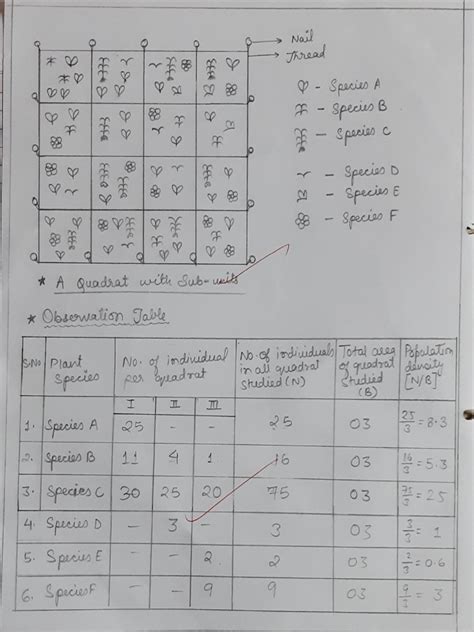 Nail
Thread
- Species A
- Species B
- Species C
- Species D
- Species E
- Species F
* A Quadrat with Sub-units
* Observation Table
S.No Plant Species No. of individual per quadrat No. of individuals in all quadrat studied (N) Total area of quadrat studied (B) Population density [N/B]
I II III
1. Species A 25 - - 25 03 25/3 = 8.3
2. Species B 11 4 1 16 03 16/3 = 5.3
3. Species C 30 25 20 75 03 75/3 = 25
4. Species D - 3 - 3 03 3/3 = 1
5. Species E - - 2 2 03 2/3 = 0.6
6. Species F - - 9 9 03 9/3 = 3